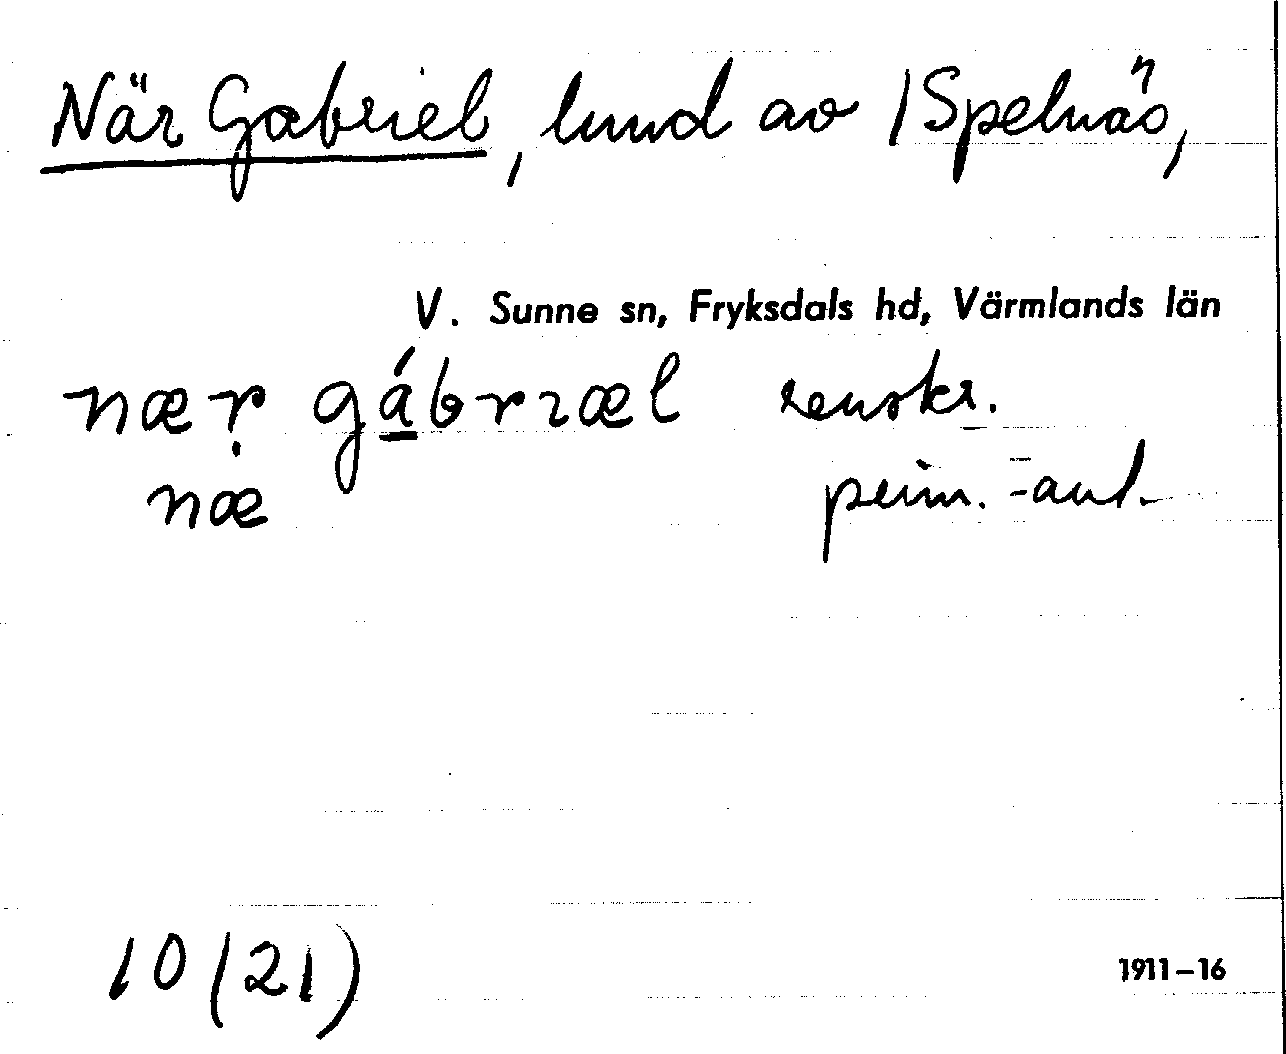 När Gabriel, lund av /Spelnäs,
V. Sunne sn, Fryksdals hd, Värmlands län
næṛ gábrıæl renskr.
næ prim. -ant.
10 (21)
1911–16